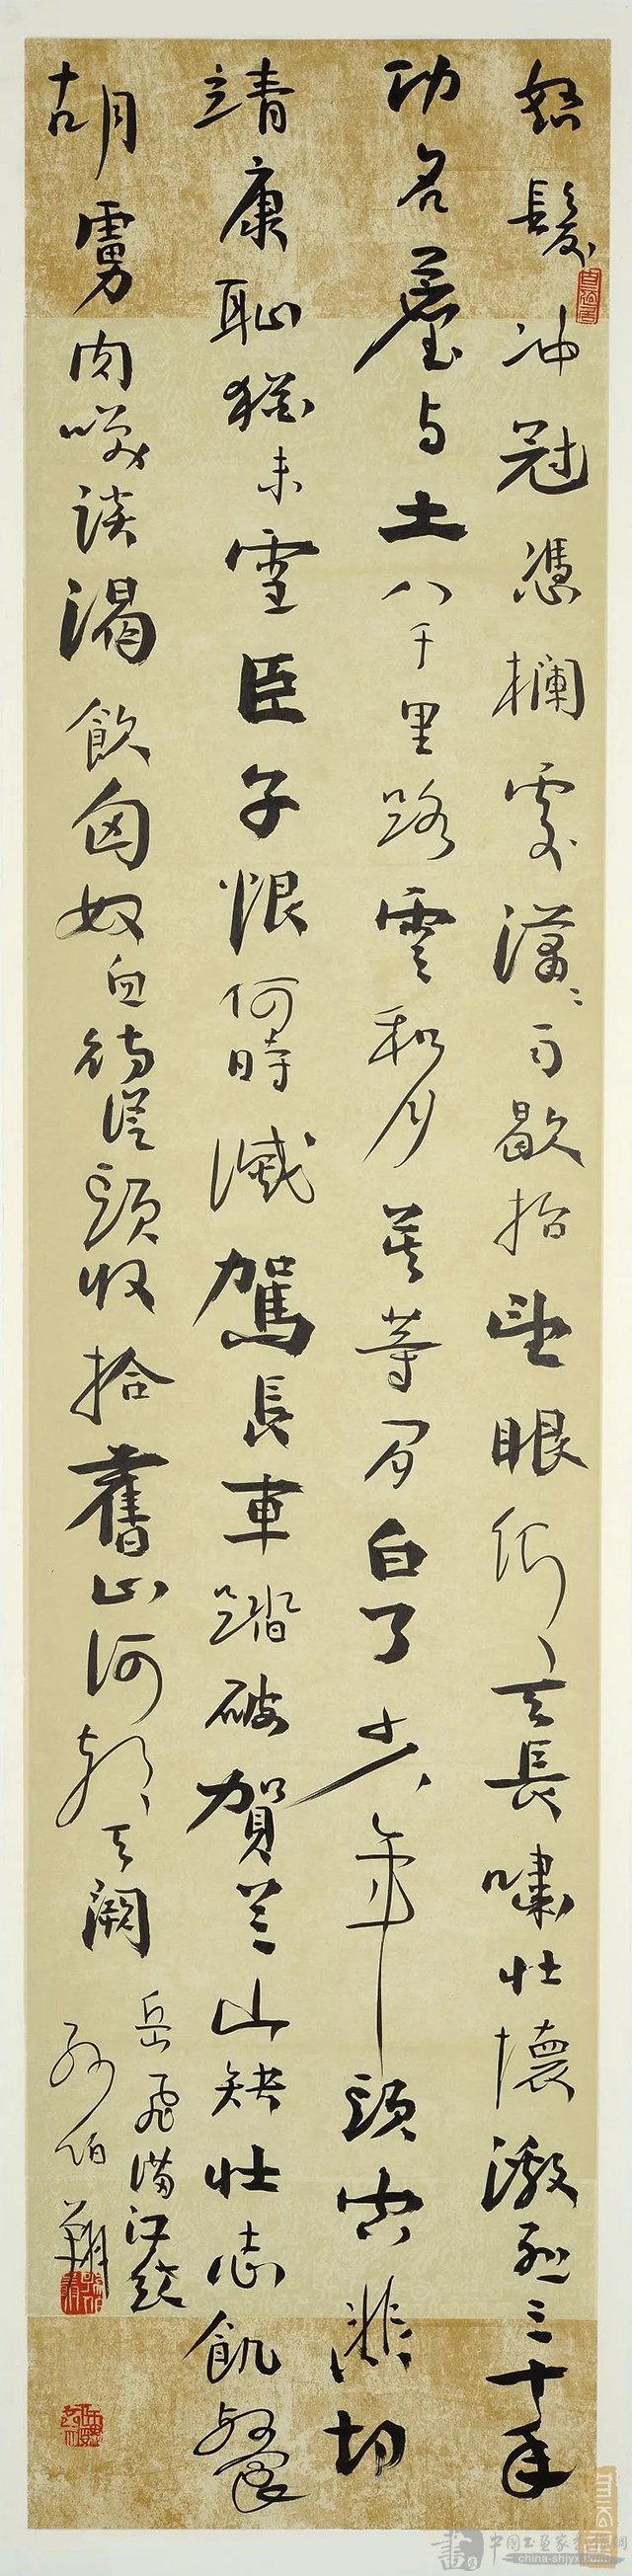 怒髮冲冠憑欄處瀟瀟雨歇抬望眼仰天長嘯壯懷激烈三十年
功名塵与土八千里路雲和月莫等閒白了少年頭空悲切
靖康恥猶未雪臣子恨何時滅駕長車踏破賀兰山缺壯志飢餐
胡虜肉咲談渴飲匈奴血待從頭收拾舊山河朝天闕
岳飛滿江紅
孫伯翔